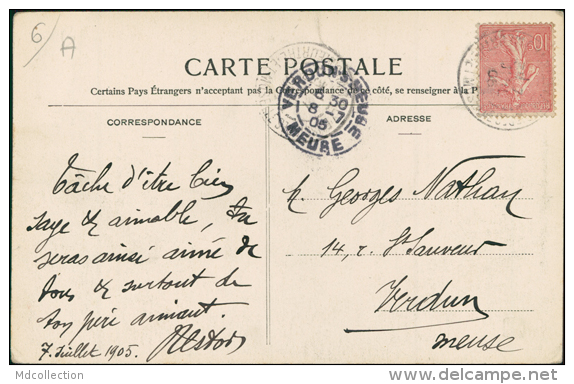 6
A
CARTE POSTALE
Certains Pays Étrangers n'acceptant pas la Correspondance de ce côté, se renseigner à la P
CORRESPONDANCE
ADRESSE
VERDUN-S-MEUSE
8 30
8 -7
05
MEUSE
10
Tâche d'être bien
sage & aimable, tu
seras ainsi aimé de
tous & surtout de
ton père aimant.
Nestor
7. Juillet 1905.
M. Georges Nathan
14, r. St Sauveur
Verdun
Meuse
Mdcollection
www.delcampe.net